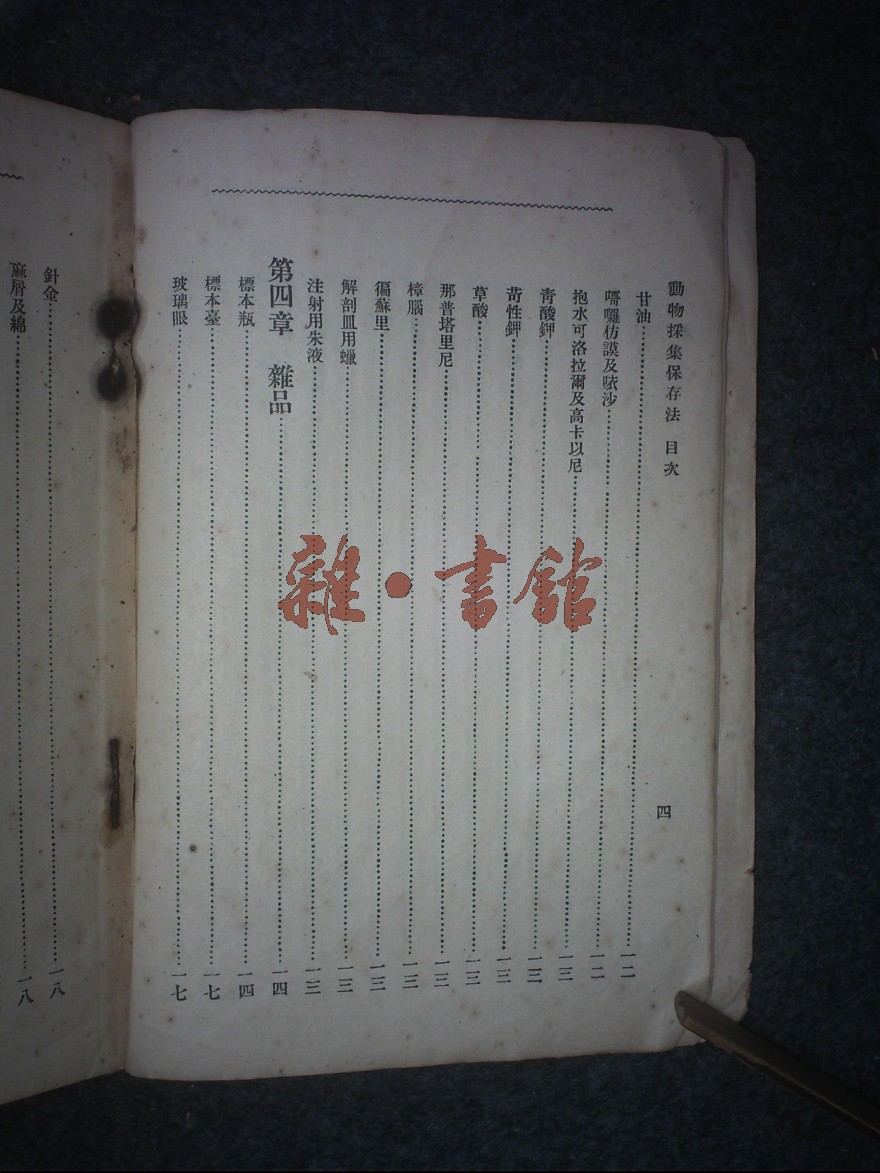 動物採集保存法　目次
四
甘油……一二
嚼囉仿謨及哝沙……一二
抱水可洛拉爾及高卡以尼……一三
靑酸鉀……一三
苛性鉀……一三
草酸……一三
那普塔里尼……一三
樟腦……一三
徧蘇里……一三
解剖皿用蠟……一三
注射用朱液……一三
第四章　雜品……一四
標本瓶……一四
標本臺……一七
玻璃眼……一七
針金……一八
麻屑及綿……一八
雜·書館